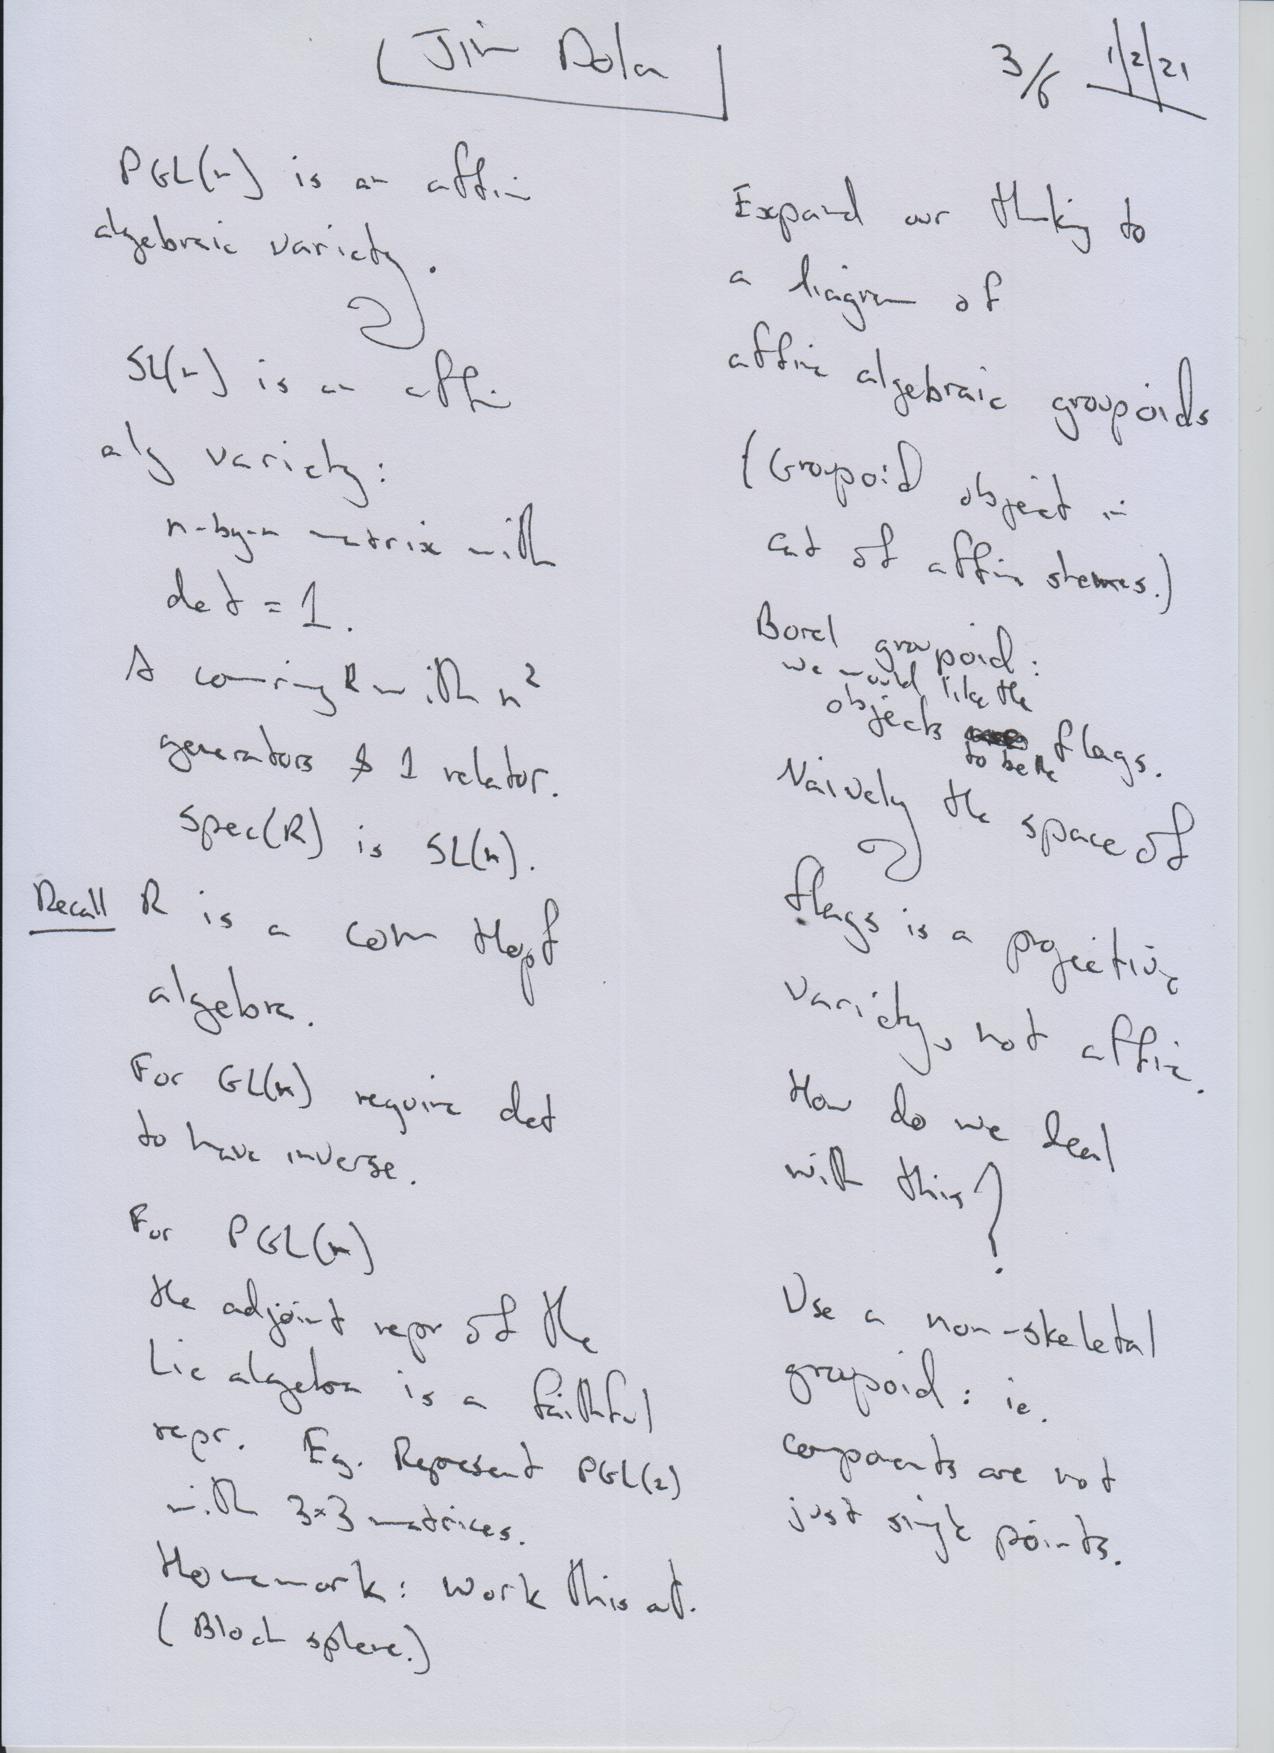 Jim Dolan
3/6 1/2/21
PGL(n) is an affine
algebraic variety.
SL(n) is an affine
alg variety:
n-by-n matrix with
det = 1.
A comm ring R with n²
generators & 1 relator.
Spec(R) is SL(n).
Recall R is a comm Hopf
algebra.
For GL(n) require det
to have inverse.
For PGL(n)
the adjoint repr of the
Lie algebra is a faithful
repr. Eg. Represent PGL(2)
with 3×3 matrices.
Homework: Work this out.
(Bloch sphere.)
Expand our thinking to
a diagram of
affine algebraic groupoids
(Groupoid object in
cat of affine schemes.)
Borel groupoid:
we would like the
objects to be the flags.
Naively the space of
flags is a projective
variety, not affine.
How do we deal
with this?
Use a non-skeletal
groupoid: ie.
components are not
just single points.